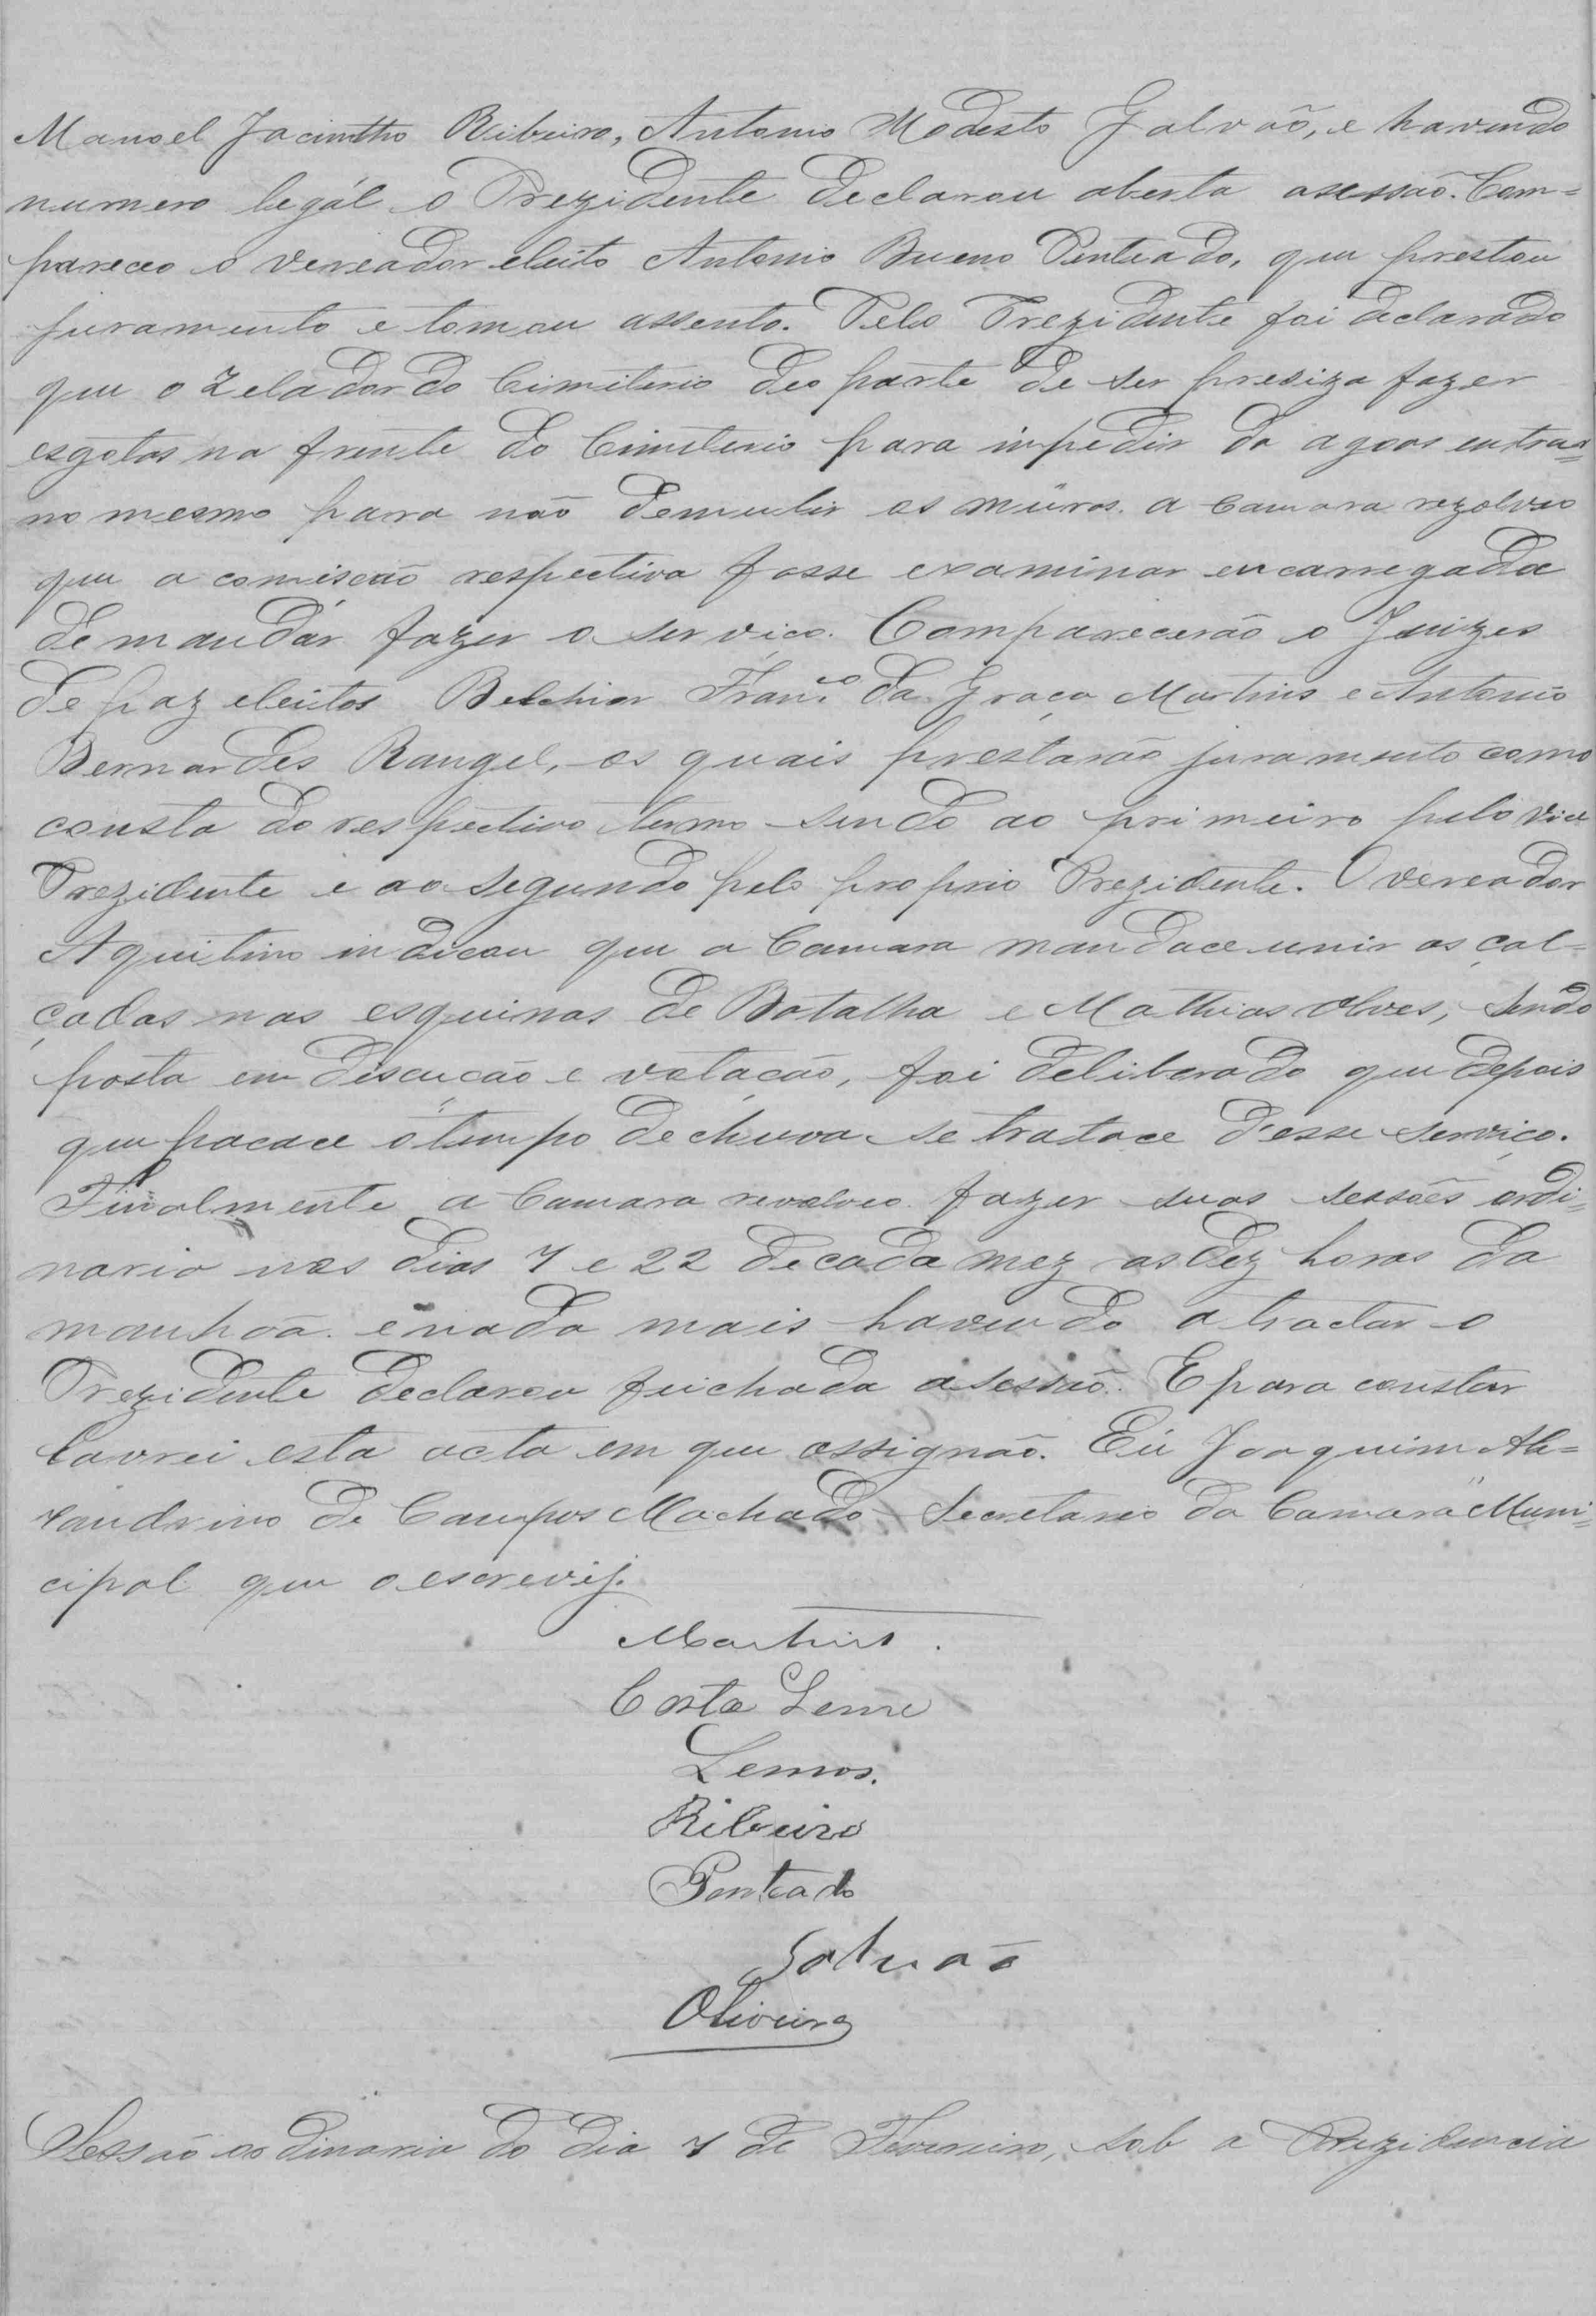 Manoel Jacinttho Ribeiro, Antonio Modesto Galvaõ, e havendo
numero legál o Prezidente declarou aberta asessaõ. Com=
pareceo o vereador eleito Antonio Bueno Penteado, que prestou
juramento e tomou assento. Pelo Prezidente foi declarado
que o Zelador do Cimiterio deo parte de ser presiza fazer
esgotos na frente do Cimiterio para impedir da agoas entrar=
no mesmo para não demulir os múros. a Camara rezolveo
que a comiscaõ respectiva fosse examinar encarregada
de mandár fazer o serviço. Comparecerão o Juizes
de paz eleitos Belchior Fran.co da Graça Martins e Antonio
Bernardes Rangel, os quais prestarão juramento como
consta do respectivo termo sendo ao primeiro pelo vice
Prezidente e ao segundo pelo proprio Prezidente. O vereador
Aquilino indicou que a Camara mandace unir as çal=
çadas nas esquinas de Batalha e Mathias Alves, sendo
posta em discução e votação, foi deliberado que depois
que pacace o tempo de chuva se tratace d'esse serviço.
Finalmente a Camara revolveo fazer suas sessões ordi=
naria nos dias 7 e 22 de cada mez as dez horas da
manhoã. e nada mais havendo a tractar o
Prezidente declarou feichada asessaõ. E para constar
lavrei esta acta em que assignaõ. Eu Joaquim Ale=
xandrino de Campos Machado Secretario da Camara Muni=
cipal que o escrevij.
Martins.
Costa Leme
Lemos.
Ribeiro
Penteado
Galvaõ
Oliveira
Sessão ordinaria do dia 7 de Fevereiro, sob a Prezidencia